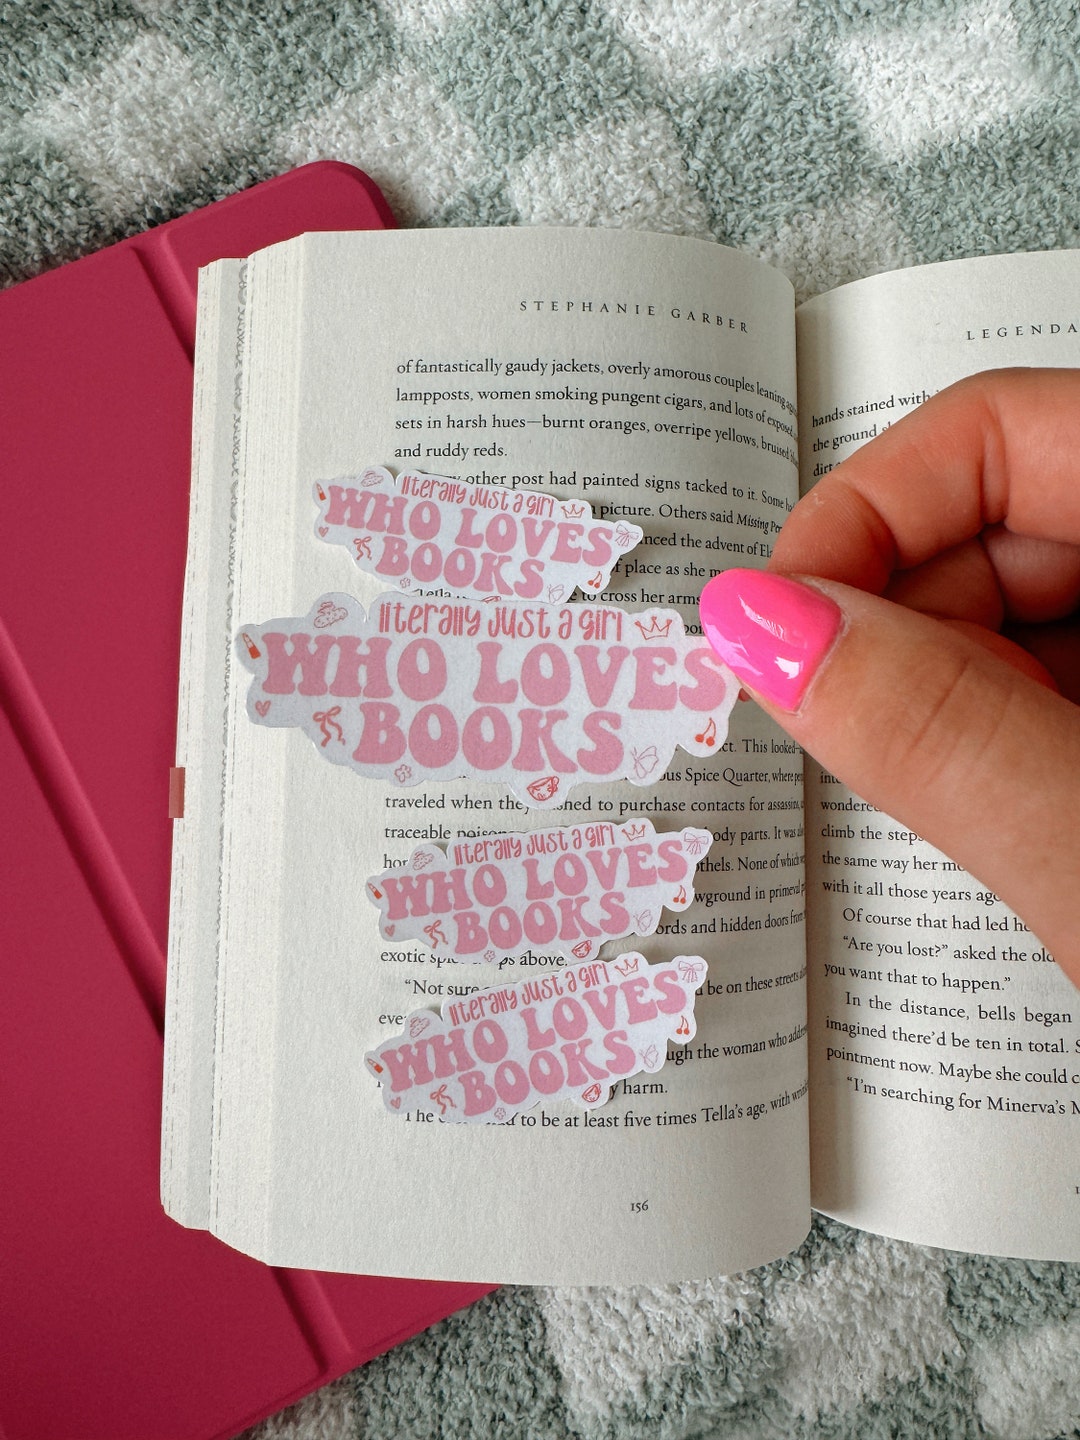 STEPHANIE GARBER
of fantastically gaudy jackets, overly amorous couples leaning
lampposts, women smoking pungent cigars, and lots of exposed
sets in harsh hues—burnt oranges, overripe yellows, bruised
and ruddy reds.
other post had painted signs tacked to it. Some
picture. Others said Missing
the advent of
of place as she
Tella
to cross her arms
literally just a girl
WHO LOVES
BOOKS
literally just a girl
WHO LOVES
BOOKS
This looked
Spice Quarter, where
traveled when they
to purchase contacts for assassins,
traceable
body parts. It was
None of which
in primeval
and hidden doors from
exotic
above.
literally just a girl
WHO LOVES
BOOKS
literally just a girl
WHO LOVES
BOOKS
“Not sure
be on these streets
the woman who
harm.
The
to be at least five times Tella’s age, with
156
LEGENDA
hands stained with
the ground
climb the steps
the same way her
with it all those years ago
Of course that had led
“Are you lost?” asked the
you want that to happen.”
In the distance, bells began
imagined there’d be ten in total.
pointment now. Maybe she could
“I’m searching for Minerva’s